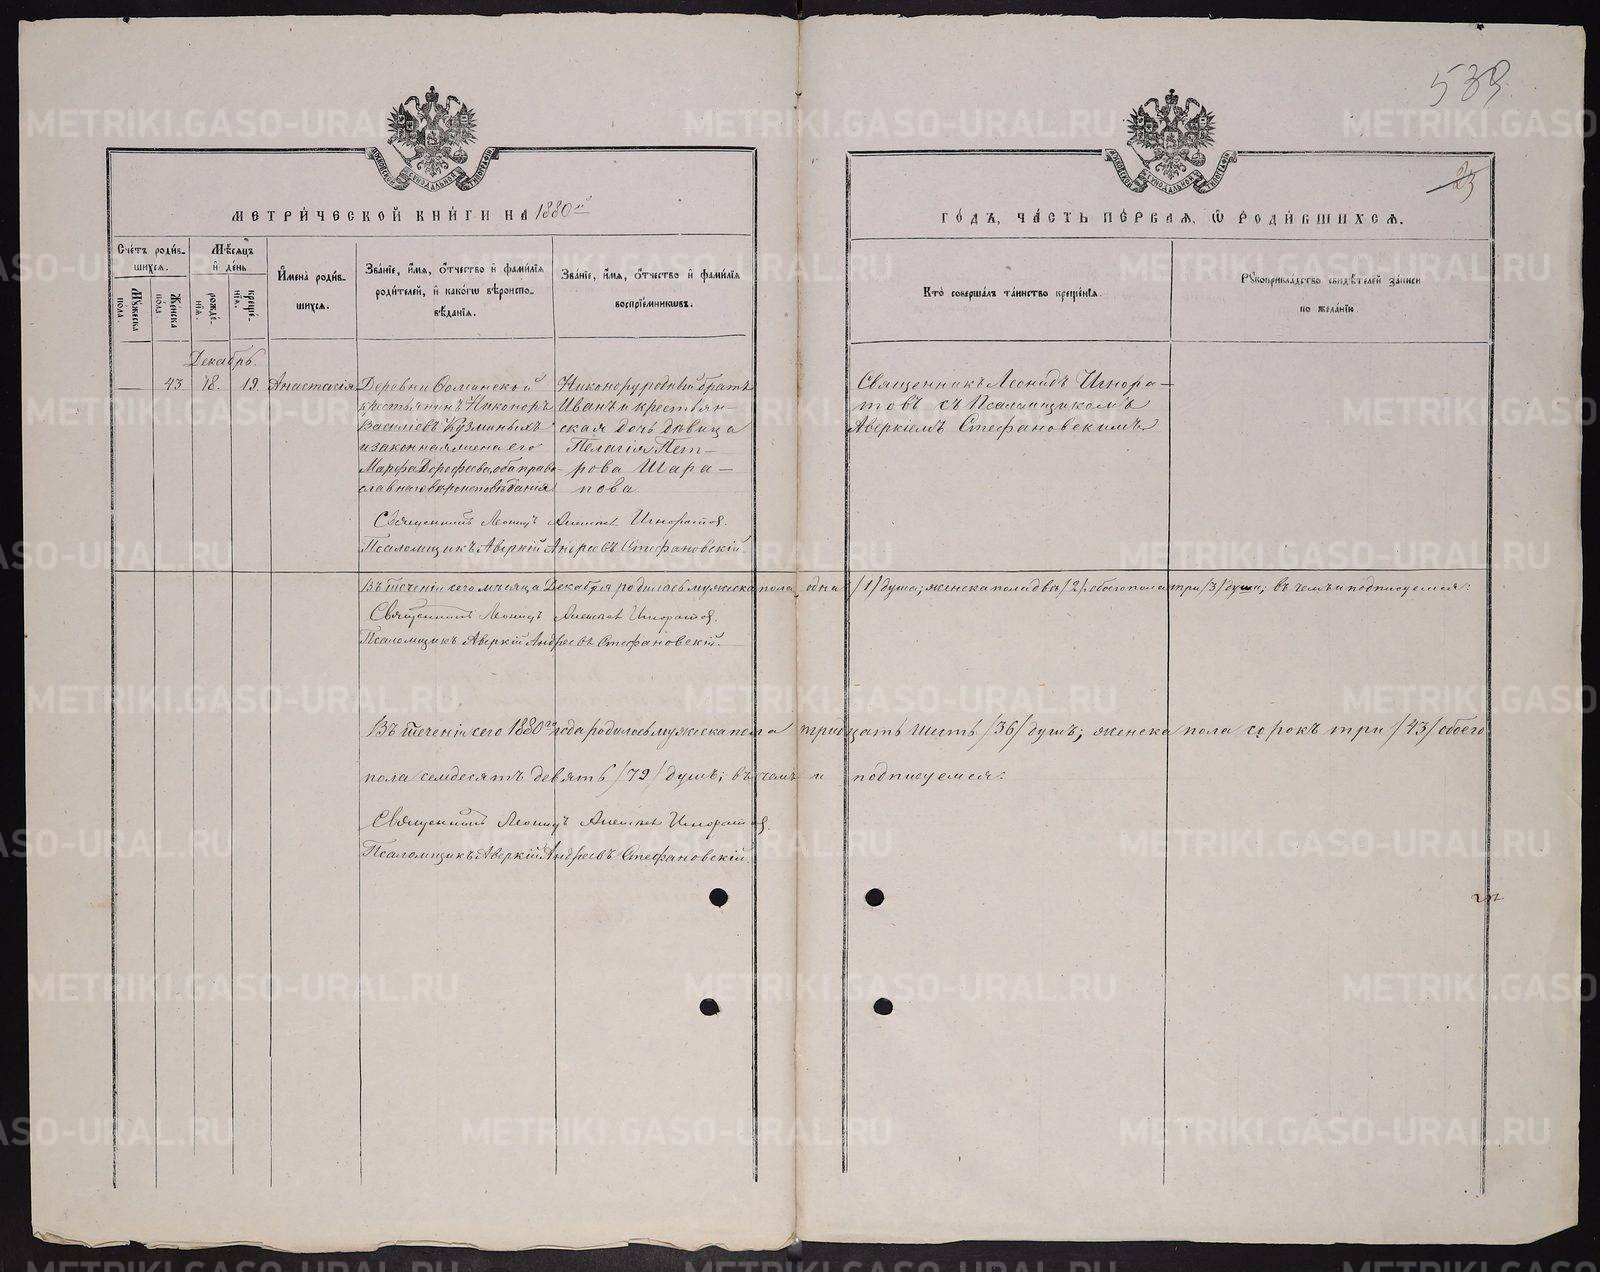 539
23
МОСКОВСКОЙ СУНОДАЛЬНОЙ ТИПОГРАФІИ
МОСКОВСКОЙ СУНОДАЛЬНОЙ ТИПОГРАФІИ
МЕТРИ́ЧЕСКОЙ КНИ́ГИ НА 1880й
ГО́ДЪ, ЧА́СТЬ ПЕ́РВАЯ, Ѽ РОДИ́ВШИХСЯ.
Сче́тъ роди́в-
шихся.
Мꙋ́жеска по́ла.
Же́нска по́ла.
Мѣ́сяцъ и҆ де́нь
рожде́-
нїя.
креще́-
нїя.
И҆мена̀ роди́в-
шихся.
Зва́нїе, и҆́мя, ѻ҆́тчество и҆ фами́лїя
роди́телей, и҆ како́гѡ вѣроиспо-
вѣ́данїя.
Зва́нїе, и҆́мя, ѻ҆́тчество и҆ фами́лїя
воспрїе́мникѡвъ.
Кто̀ соверша́лъ та́инство креще́нїя.
Рꙋкоприкла́дство свидѣ́телей за́писи
по жела́нїю.
Декабрь.
43 18. 19. Анастасія
Деревни Фоминской
крестьянинъ Никоноръ
Василіевъ Кузминыхъ
и законная жена его
Марфа Дорофеева, оба право-
славнаго вѣроисповѣданія
Никонору родный братъ
Иванъ и крестьян-
ская дочь дѣвица
Пелагія Пет-
рова Шара-
пова.
Священникъ Леонидъ Игнора-
товъ съ Псаломщикомъ
Аверкіемъ Стефановскимъ
Священникъ Леонидъ Алексѣевъ Игноратов.
Псаломщикъ Аверкій Андреевъ Стефановскій.
Въ теченіи сего мѣсяца Декабря родилось мужеска пола одна /1/ душа; женска пола двѣ /2/, обоего пола три /3/ души; въ чемъ и подписуемся:
Священникъ Леонидъ Алексѣевъ Игноратов.
Псаломщикъ Аверкій Андреевъ Стефановскій.
Въ теченіи сего 1880го года родилось мужеска пола тридцать шесть /36/ душъ; женска пола сорокъ три /43/ обоего
пола семдесятъ девять /79/ душъ; въ чемъ и подписуемся:
Священникъ Леонидъ Алексѣевъ Игноратов.
Псаломщикъ Аверкій Андреевъ Стефановскій.
METRIKI.GASO-URAL.RU